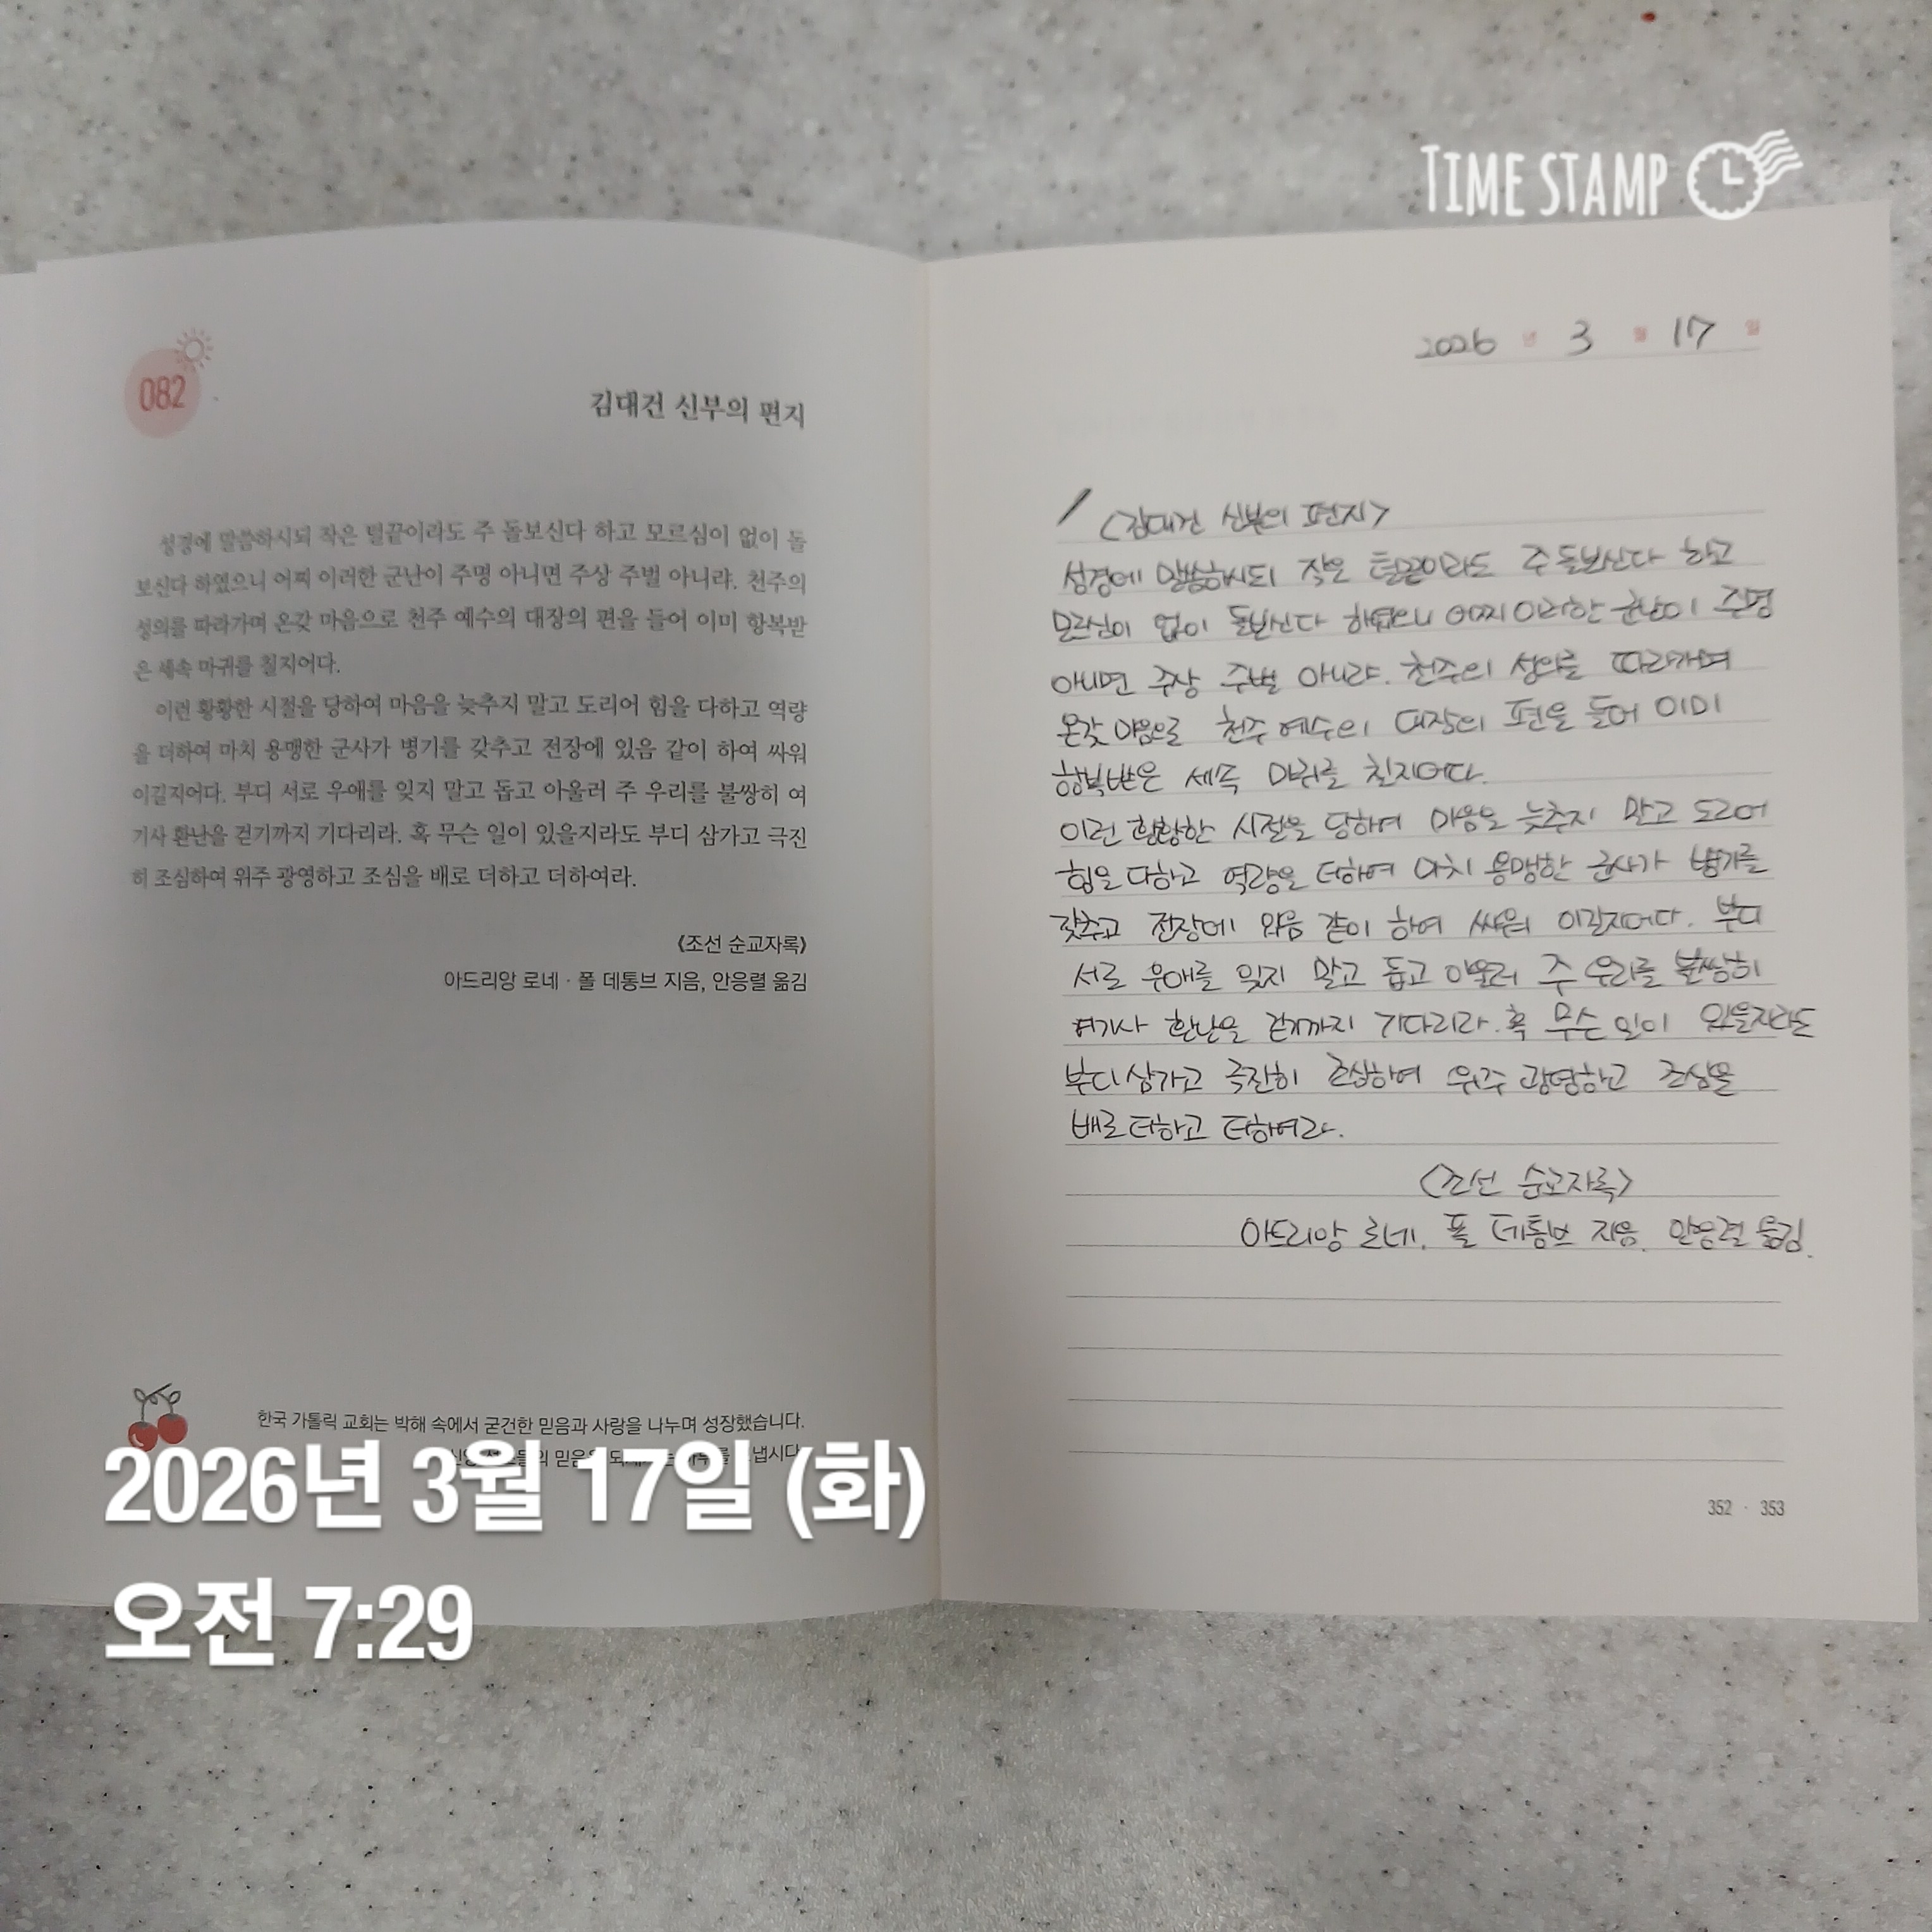 TIME STAMP
082
김대건 신부의 편지
성경에 말씀하시되 작은 털끝이라도 주 돌보신다 하고 모르심이 없이 돌
보신다 하였으니 어찌 이러한 군난이 주명 아니면 주상 주벌 아니랴. 천주의
성의를 따라가며 온갖 마음으로 천주 예수의 대장의 편을 들어 이미 항복받
은 세속 마귀를 칠지어다.
이런 황황한 시절을 당하여 마음을 늦추지 말고 도리어 힘을 다하고 역량
을 더하여 마치 용맹한 군사가 병기를 갖추고 전장에 있음 같이 하여 싸워
이길지어다. 부디 서로 우애를 잊지 말고 돕고 아울러 주 우리를 불쌍히 여
기사 환난을 걷기까지 기다리라. 혹 무슨 일이 있을지라도 부디 삼가고 극진
히 조심하여 위주 광영하고 조심을 배로 더하고 더하여라.
《조선 순교자록》
아드리앙 로네 · 폴 데통브 지음, 안응렬 옮김
한국 가톨릭 교회는 박해 속에서 굳건한 믿음과 사랑을 나누며 성장했습니다.
믿음
2026년 3월 17일 (화)
오전 7:29
2026 년 3 월 17 일
<김대건 신부의 편지>
성경에 말씀하시되 작은 털끝이라도 주 돌보신다 하고
모르심이 없이 돌보신다 하였으니 어찌 이러한 군난이 주명
아니면 주상 주벌 아니랴. 천주의 성의를 따라가며
온갖 마음으로 천주 예수의 대장의 편을 들어 이미
항복받은 세속 마귀를 칠지어다.
이런 황황한 시절을 당하여 마음을 늦추지 말고 도리어
힘을 다하고 역량을 더하여 마치 용맹한 군사가 병기를
갖추고 전장에 있음 같이 하여 싸워 이길지어다. 부디
서로 우애를 잊지 말고 돕고 아울러 주 우리를 불쌍히
여기사 환난을 걷기까지 기다리라. 혹 무슨 일이 있을지라도
부디 삼가고 극진히 조심하여 위주 광영하고 조심을
배로 더하고 더하여라.
<조선 순교자록>
아드리앙 로네. 폴 데통브 지음. 안응렬 옮김.
352 · 353